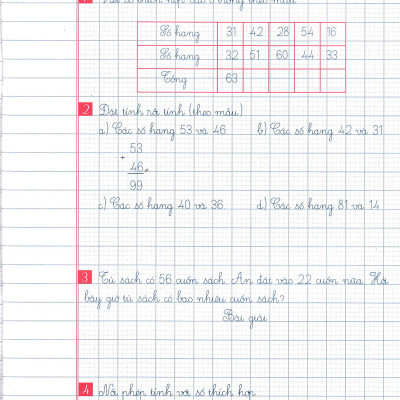 Số hạng 31 42 28 54 16
Số hạng 32 51 60 44 33
Tổng 63
2 Đặt tính rồi tính (theo mẫu)
a) Các số hạng 53 và 46. b) Các số hạng 42 và 31
53
+
46
99
c) Các số hạng 40 và 36. d) Các số hạng 81 và 14
3 Tủ sách có 56 cuốn sách. An đặt vào 22 cuốn nữa. Hỏi
bây giờ tủ sách có bao nhiêu cuốn sách?
Bài giải
4 Nối phép tính với số thích hợp